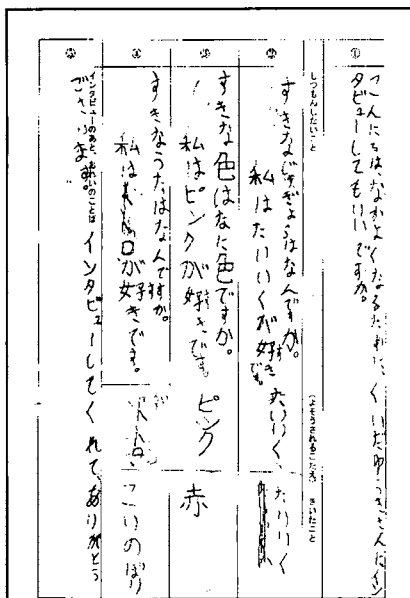 ①
こんにちは、なかよくなるために、くいだゆうきさんにイン
タビューしてもいいですか。
しつもんしたいこと
(よそうされるこたえ)
きいたこと
すきなじゅぎょうはなんですか。
私はたいいくが好きです。
たいいく
たいいく
すきな色はなに色ですか。
私はピンクが好きです。
ピンク
赤
すきなうたはなんですか。
が好きです。
こいのぼり
インタビューのあと、おれいのことば
インタビューしてくれて、ありがとう
ございます。